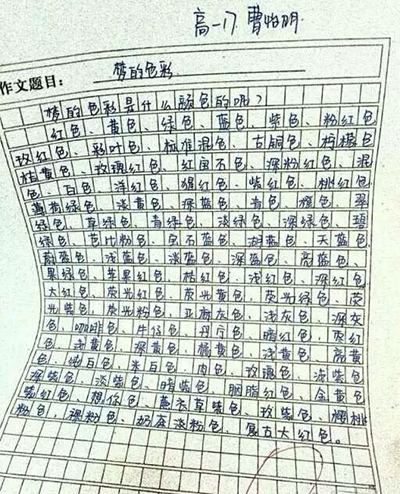 高一17 曹怡明
作文题目： 梦的色彩
梦的色彩是什么颜色的呢？
红色、黄色、绿色、蓝色、紫色、粉红色
玫红色、彩叶色、标准混色、古铜色、柠檬色
桔黄色、玫瑰红色、红宝石色、深粉红色、混
色、白色、洋红色、猩红色、紫红色、桃红色
薄荷绿色、淡黄色、深蓝色、青色、橙色、翠
绿色、草绿色、青绿色、淡绿色、深绿色、碧
绿色、芭比粉色、宝石蓝色、湖蓝色、天蓝色
蔚蓝色、浅蓝色、淡蓝色、深蓝色、亮蓝色、
果绿色、苹果红色、桔红色、浅红色、深红色
大红色、荧光红色、荧光黄色、荧光绿色、荧
光紫色、荧光粉色、亚麻灰色、浅灰色、深灰
色、咖啡色、牛仔色、丹宁色、暗红色、枣红
色、浅黄色、深黄色、橘黄色、浅黄色、亮黄
色、纯白色、米白色、肉色、玫瑰色、浅紫色
深紫色、淡紫色、暗紫色、胭脂红色、金黄色
紫红色、想你色、薰衣草紫色、玫紫色、樱桃
粉色、裸粉色、奶茶淡粉色、复古大红色。